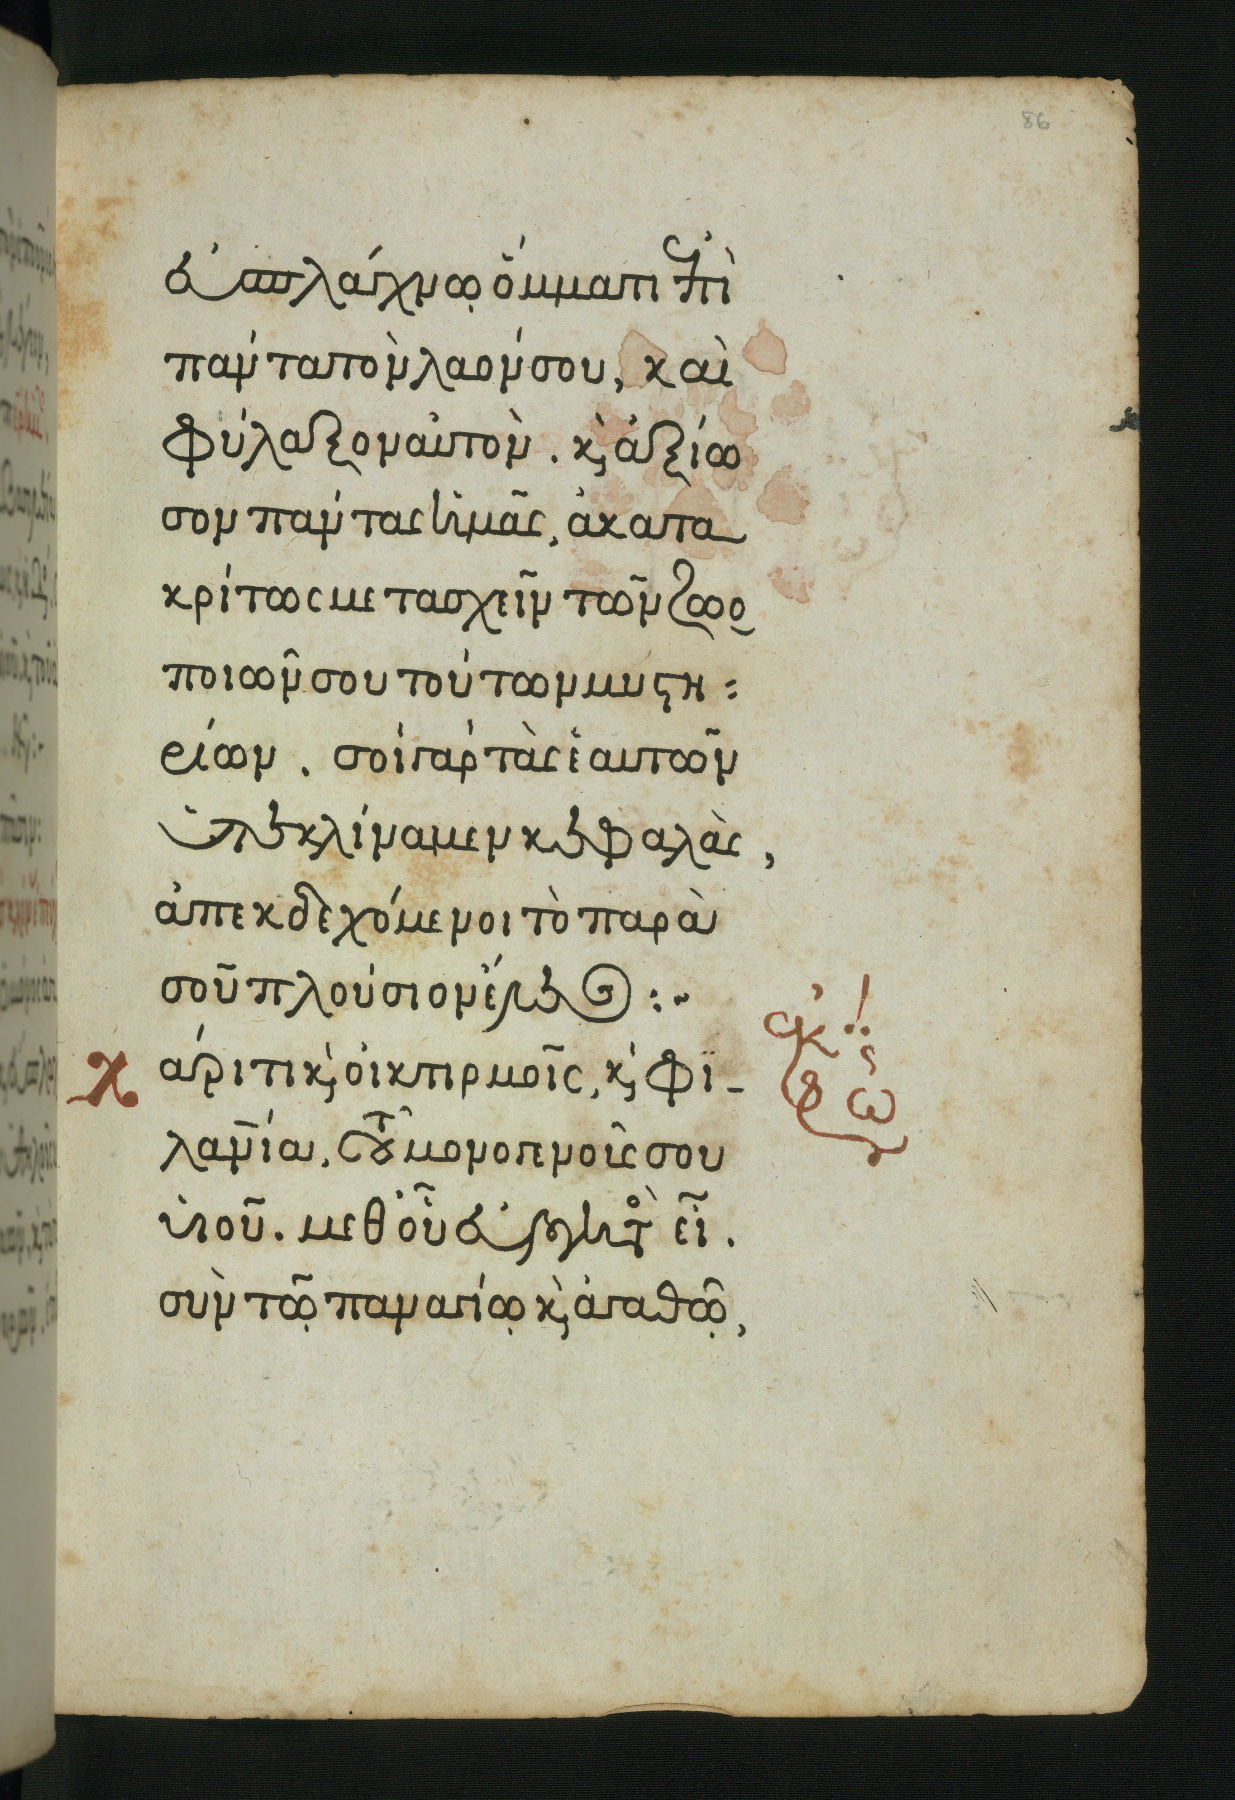 86
εὐσπλάγχνῳ ὄμματι ἐπὶ
πάντα τὸν λαόν σου, καὶ
φύλαξον αὐτὸν. κ̀ ἀξίω
σον πάντας ἡμᾶς, ἀκατα
κρίτως μετασχεῖν τῶν ζωο
ποιῶν σου τούτων μυστη:
ρίων. σοὶ γάρ τὰς ἑαυτῶν
ὑπεκλίναμεν κεφαλὰς,
ἀπεκδεχόμενοι τὸ παρὰ
σοῦ πλούσιον ἔλεος:~
Χάριτι κ̀ οἰκτιρμοῖς, κ̀ φι-
λανίᾳ, τοῦ μονογενοῦς σου
ὑιοῦ. μεθ οὗ εὐλογητὸ εἶ.
σὺν τῷ παναγίῳ κ̀ ἀγαθῷ,